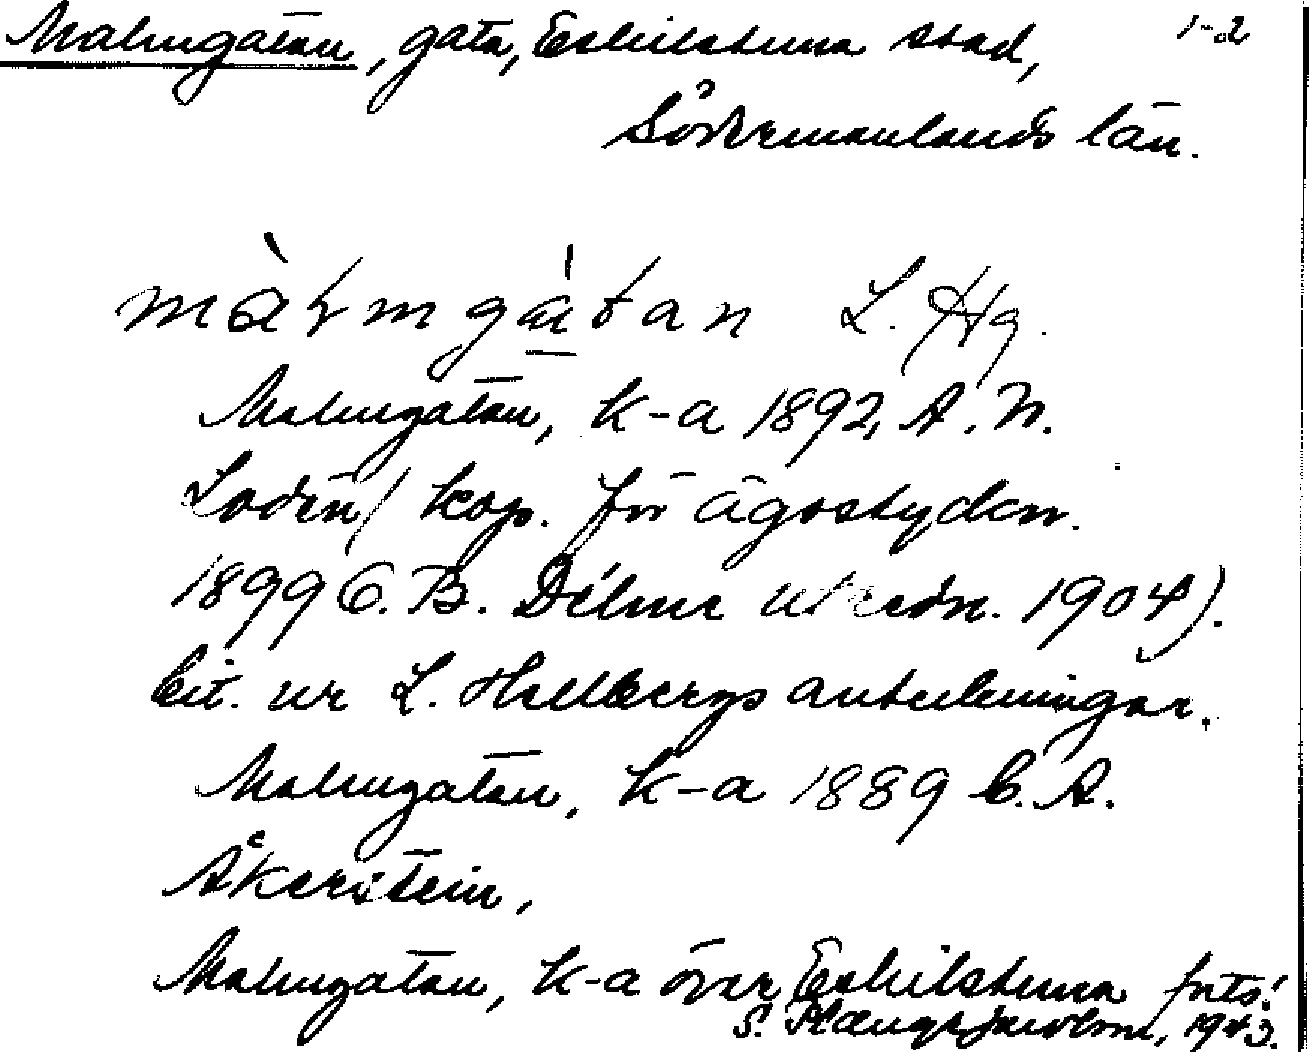 Malmgatan, gata, Eskilstuna stad, 1-2
Södermanlands län.
màlmgátan L. Hg.
Malmgatan, k-a 1892, A. N.
Lodin (kop. för ägostyckn.
1899 C. B. Délme utredn. 1904).
Cit. ur L. Hellbergs anteckningar.
Malmgatan, k-a 1889 C. A.
Åkerstein,
Malmgatan, k-a över Eskilstuna forts!
S. 1943.